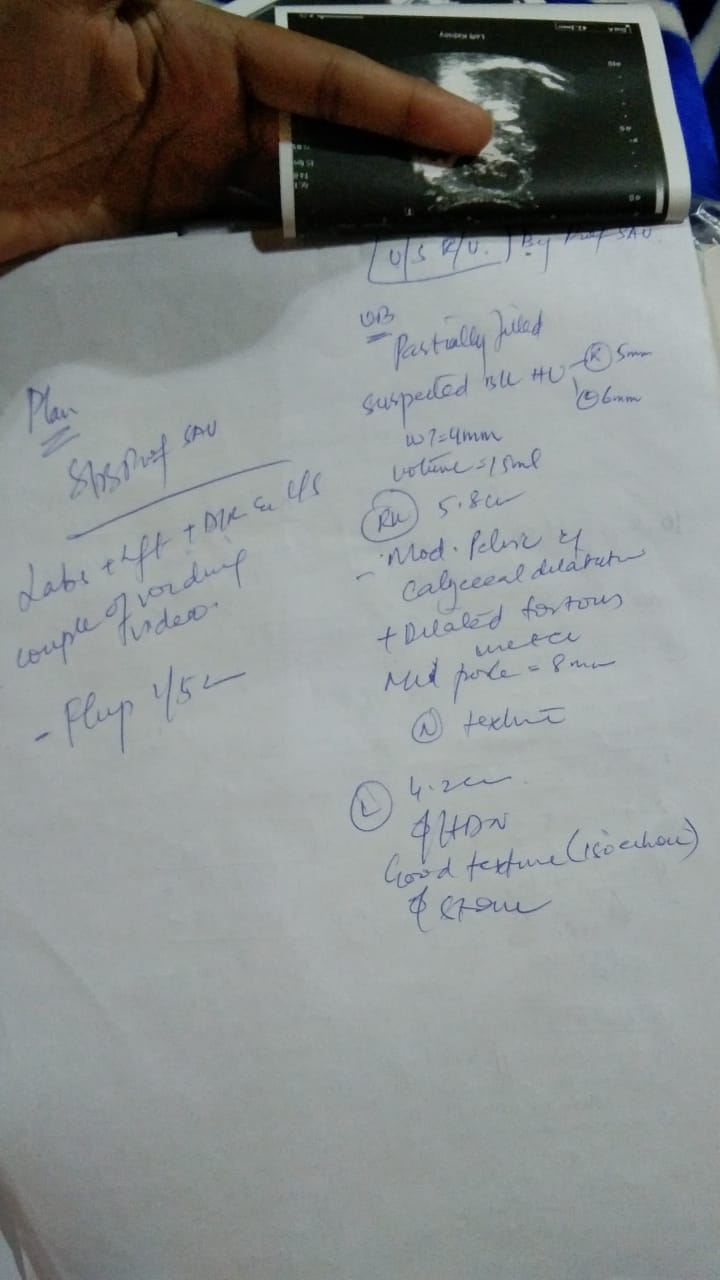 Left Kidney
U/S R/V. By Prof SAU
UB
Partially filled
suspected BL HU R 5mm
L 6mm
WT=4mm
volume=15ml
RK 5.8cm
- Mod. Pelvic
Calyceal dilatation
+ Dilated tortous
Mid pole = 8mm
N texture
L 4.2cm
φ HDN
Good texture (isoechoic)
φ stone
Plan
Prof SAU
Labs + + D/R C/S
couple of voiding
video
- F/up